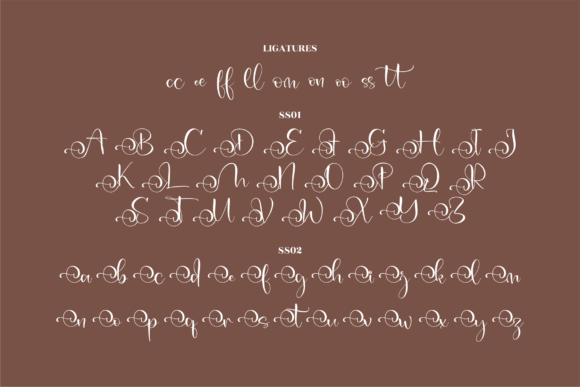 LIGATURES
cc ee ff ll om on oo ss tt
SS01
A B C D E F G H I J
K L M N O P Q R
S T U V W X Y Z
SS02
a b c d e f g h i j k l m
n o p q r s t u v w x y z